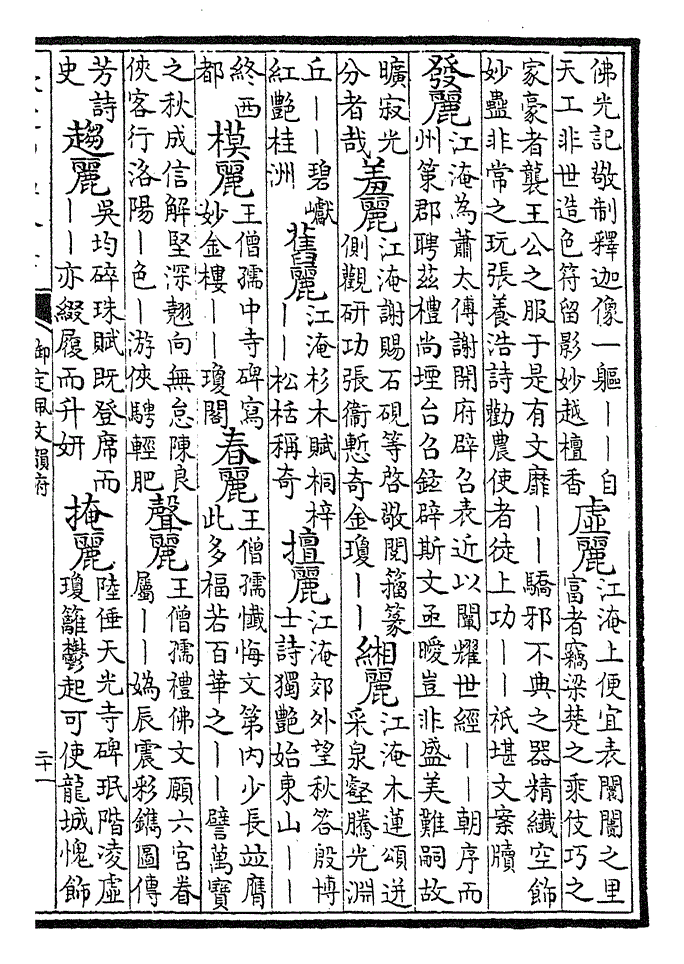 佛光記敬制釋迦像一軀——自
天工非世造色符留影妙越檀香
虛麗
江淹上便宜表闤闠之里
富者竊梁楚之乘伎巧之
家豪者襲王公之服于是有文靡——驕邪不典之器精纖空飾
妙蠱非常之玩張養浩詩勸農使者徒上功——祇堪文案牘
發麗
江淹為蕭太傅謝開府辟召表近以闡耀世經——朝序而
州策郡聘茲禮尚堙台召鉉辟斯文亟曖豈非盛美難嗣故
曠寂光
分者哉
羞麗
江淹謝賜石硯等啓敬閱籀篆
側觀研功張衞慙奇金瓊——
緗麗
江淹木蓮頌迸
采泉壑騰光淵
丘——碧巘
紅艷桂洲
舊麗
江淹杉木賦桐梓
——松栝稱奇
擅麗
江淹郊外望秋答殷博
士詩獨艷始東山——
終西
都
模麗
王僧孺中寺碑寫
妙金樓——瓊閣
春麗
王僧孺懺悔文第内少長並膺
此多福若百華之——譬萬寶
之秋成信解堅深翹向無怠陳良
俠客行洛陽—色—游俠騁輕肥
聲麗
王僧孺禮佛文願六宮眷
屬——媯辰震彩鐫圖傳
芳詩
史
趨麗
吳均碎珠賦既登席而
——亦綴履而升妍
掩麗
陸倕天光寺碑珉階淩虛
瓊籬鬱起可使龍城愧飾
御定佩文韻府
二十一